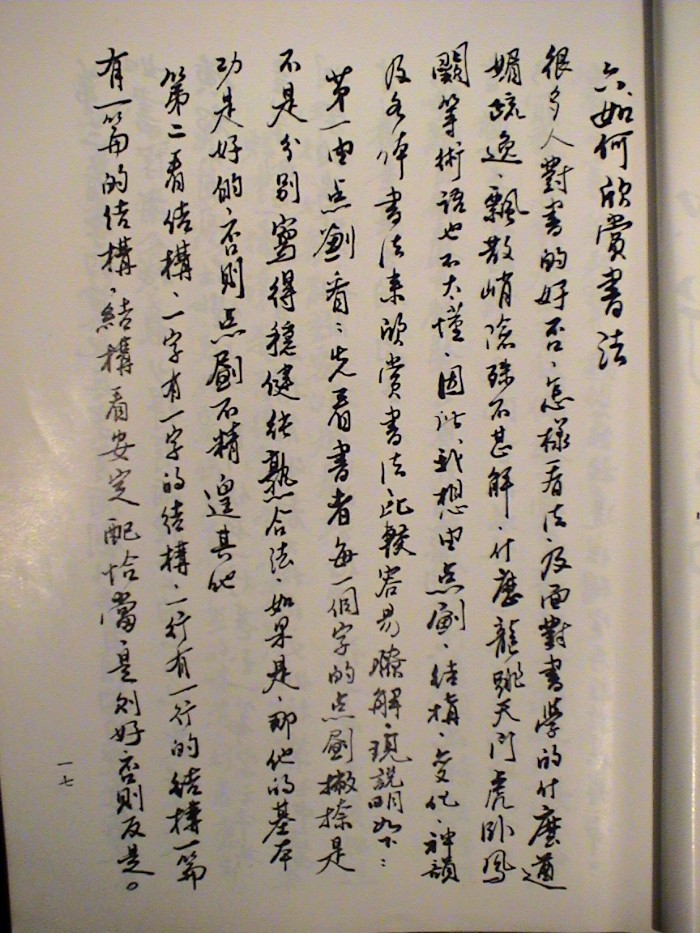 六、如何欣賞書法
很多人對書的好否、怎樣看法、及面對書學的什麼遒
媚疏逸、飄散峭險殊不甚解、什麼龍跳天門虎卧鳳
闕等術語也不大懂、因此我想由点劃、結構、变化、神韻
及各体書法來欣賞書法比較容易瞭解、現說明如下：
第一由点劃看：先看書者每一個字的点劃撇捺是
不是分别寫得穩健純熟合法、如果是、那他的基本
功是好的、否則点劃不精遑其他
第二看結構、一字有一字的結構、一行有一行的結構一篇
有一篇的結構、結構看安定配恰當、是則好、否則反是。
一七